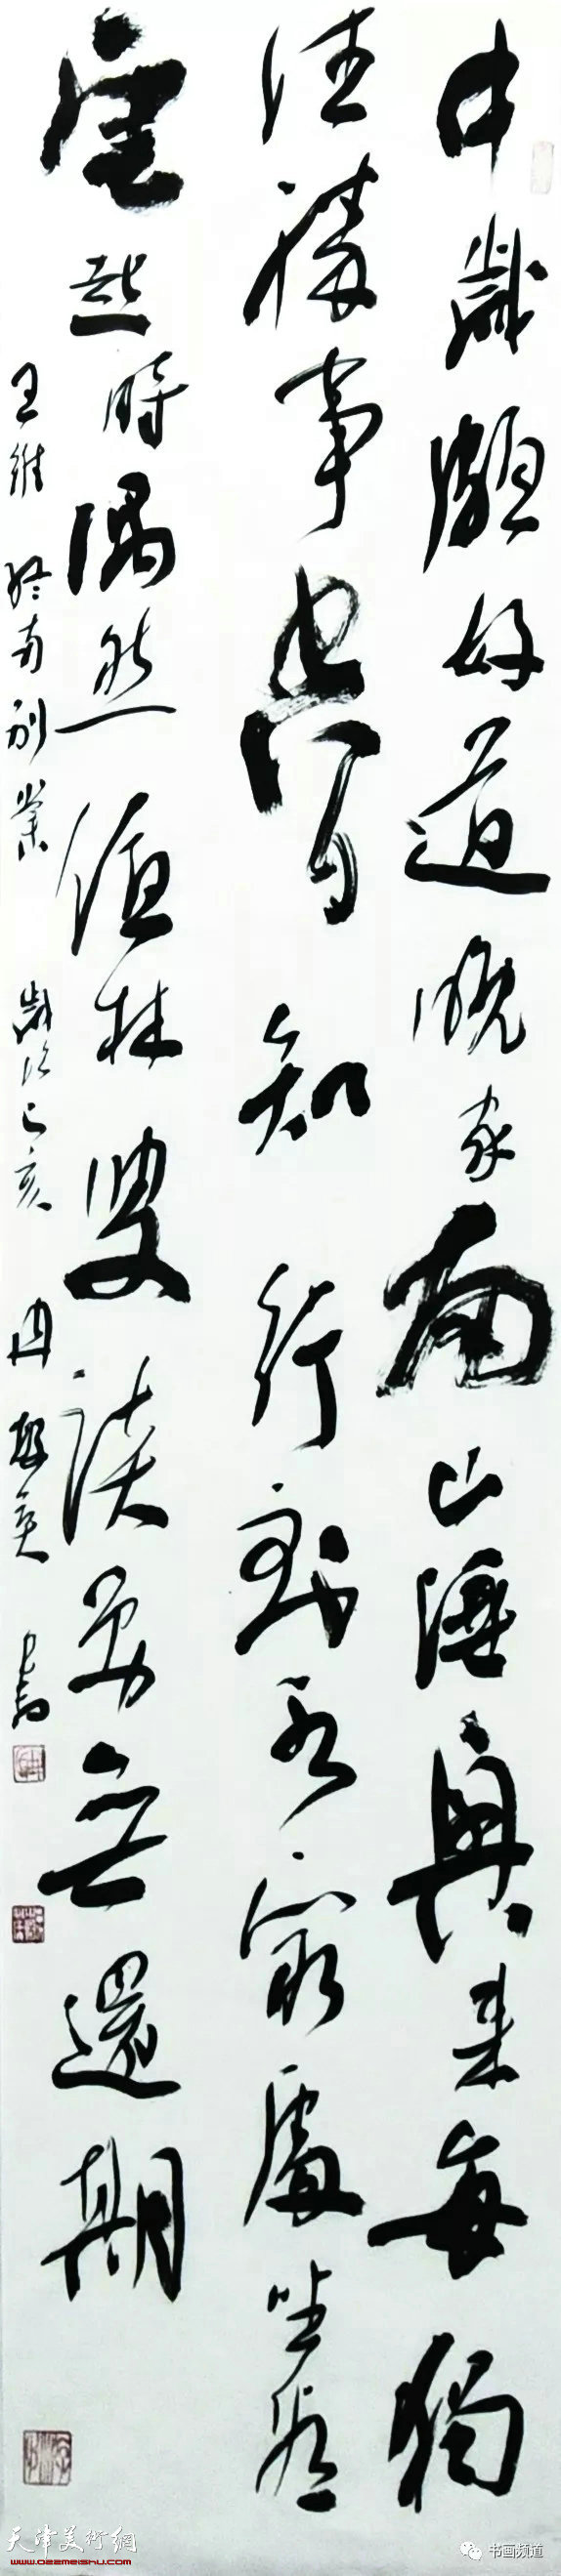 中歲頗好道晚家南山陲興來每獨
往勝事空自知行到水窮處坐看
雲起時偶然值林叟談笑無還期
王維 終南別業 歲次己亥 冉繁英 書
天津美術網
www.022meishu.com
书画频道